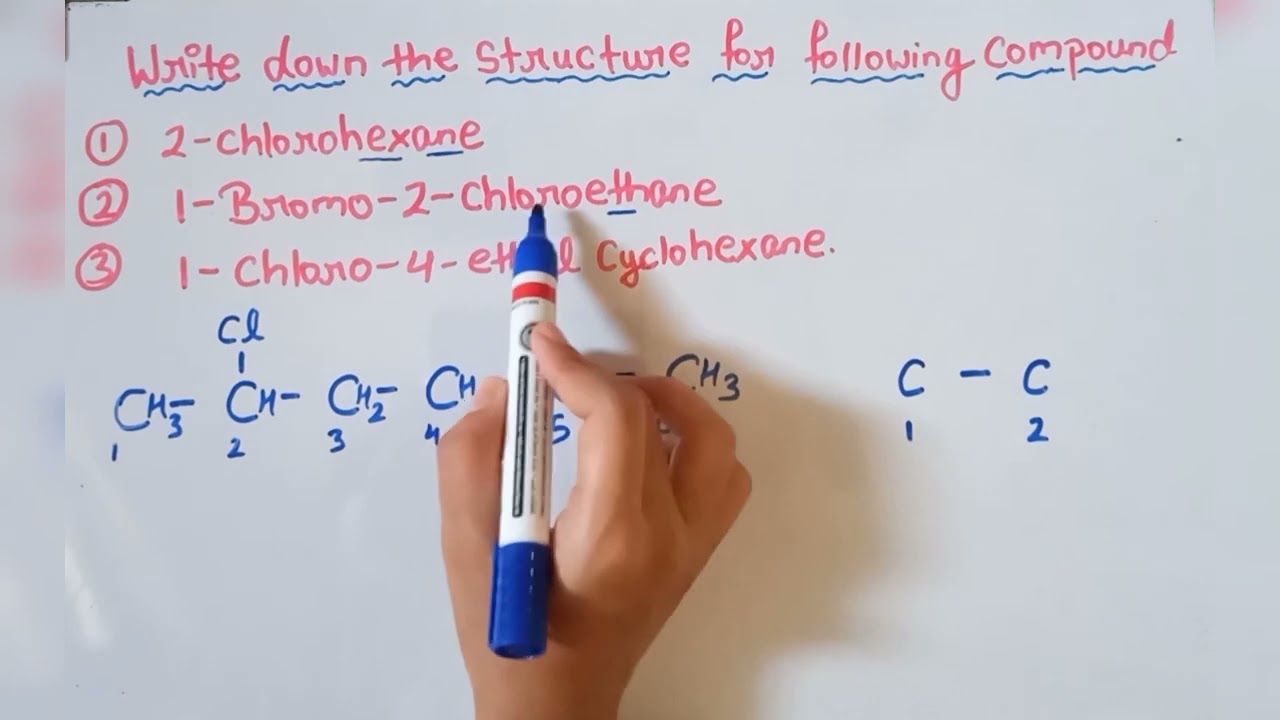 Write down the structure for following compound
① 2-chlorohexane
② 1-Bromo-2-chloroethane
③ 1-chloro-4- cyclohexane.
Cl
CH3- CH- CH2- CH - CH3
1 2 3 4 5
C - C
1 2